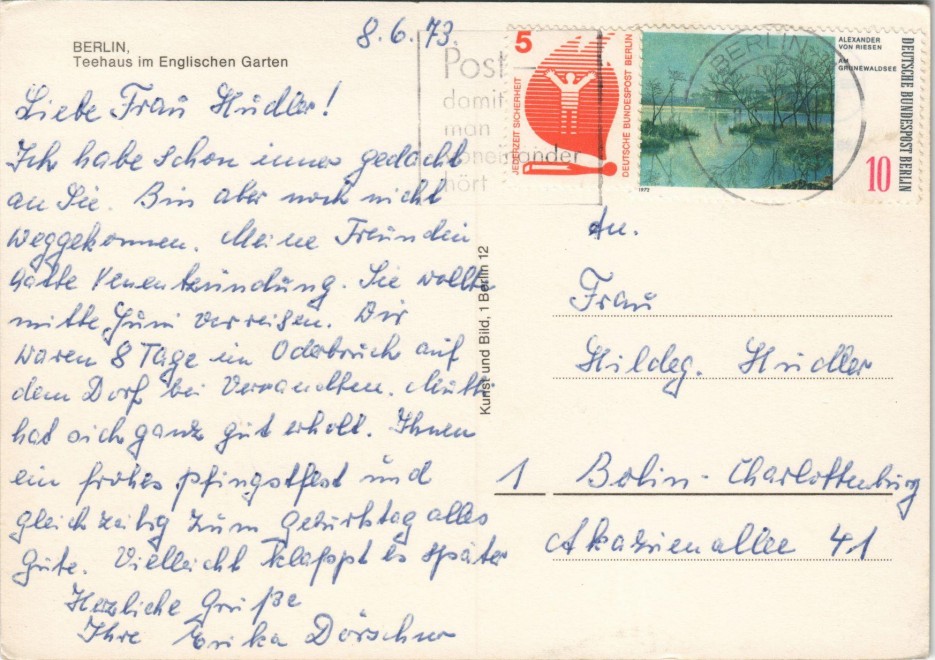 8.6.73.
BERLIN,
Teehaus im Englischen Garten
Liebe Frau Hudler!
Ich habe schon immer gedacht
an Sie. Bin aber noch nicht
weggekommen. Meine Freundin
hatte Venenentzündung. Sie wollte
mitte Juni verreisen. Wir
waren 8 Tage im Oderbruch auf
dem Dorf bei Verwandten. Mutti
hat sich ganz gut erholt. Ihnen
ein frohes Pfingstfest und
gleichzeitig zum Geburtstag alles
Gute. Vielleicht klappt es später
Herzliche Grüße
Ihre Erika
Kunst und Bild, 1 Berlin 12
Post
damit
man
voneinander
hört
5
JEDERZEIT SICHERHEIT
DEUTSCHE BUNDESPOST BERLIN
BERLIN
ALEXANDER
VON RIESEN
AM
GRUNEWALDSEE
DEUTSCHE BUNDESPOST BERLIN
10
1972
An.
Frau
Hildeg. Hudler
1 Berlin-Charlottenburg
Akazienallee 41